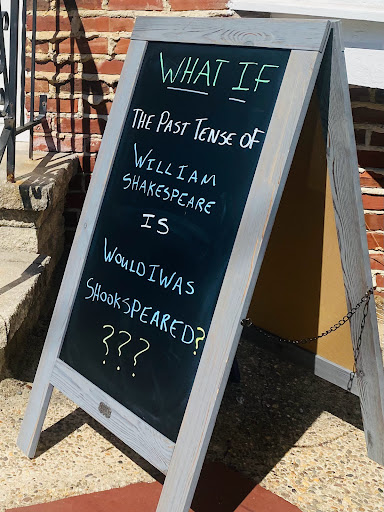 WHAT IF
THE PAST TENSE OF
WILLIAM
SHAKESPEARE
IS
WOULDIWAS
SHOOKSPEARED?
???